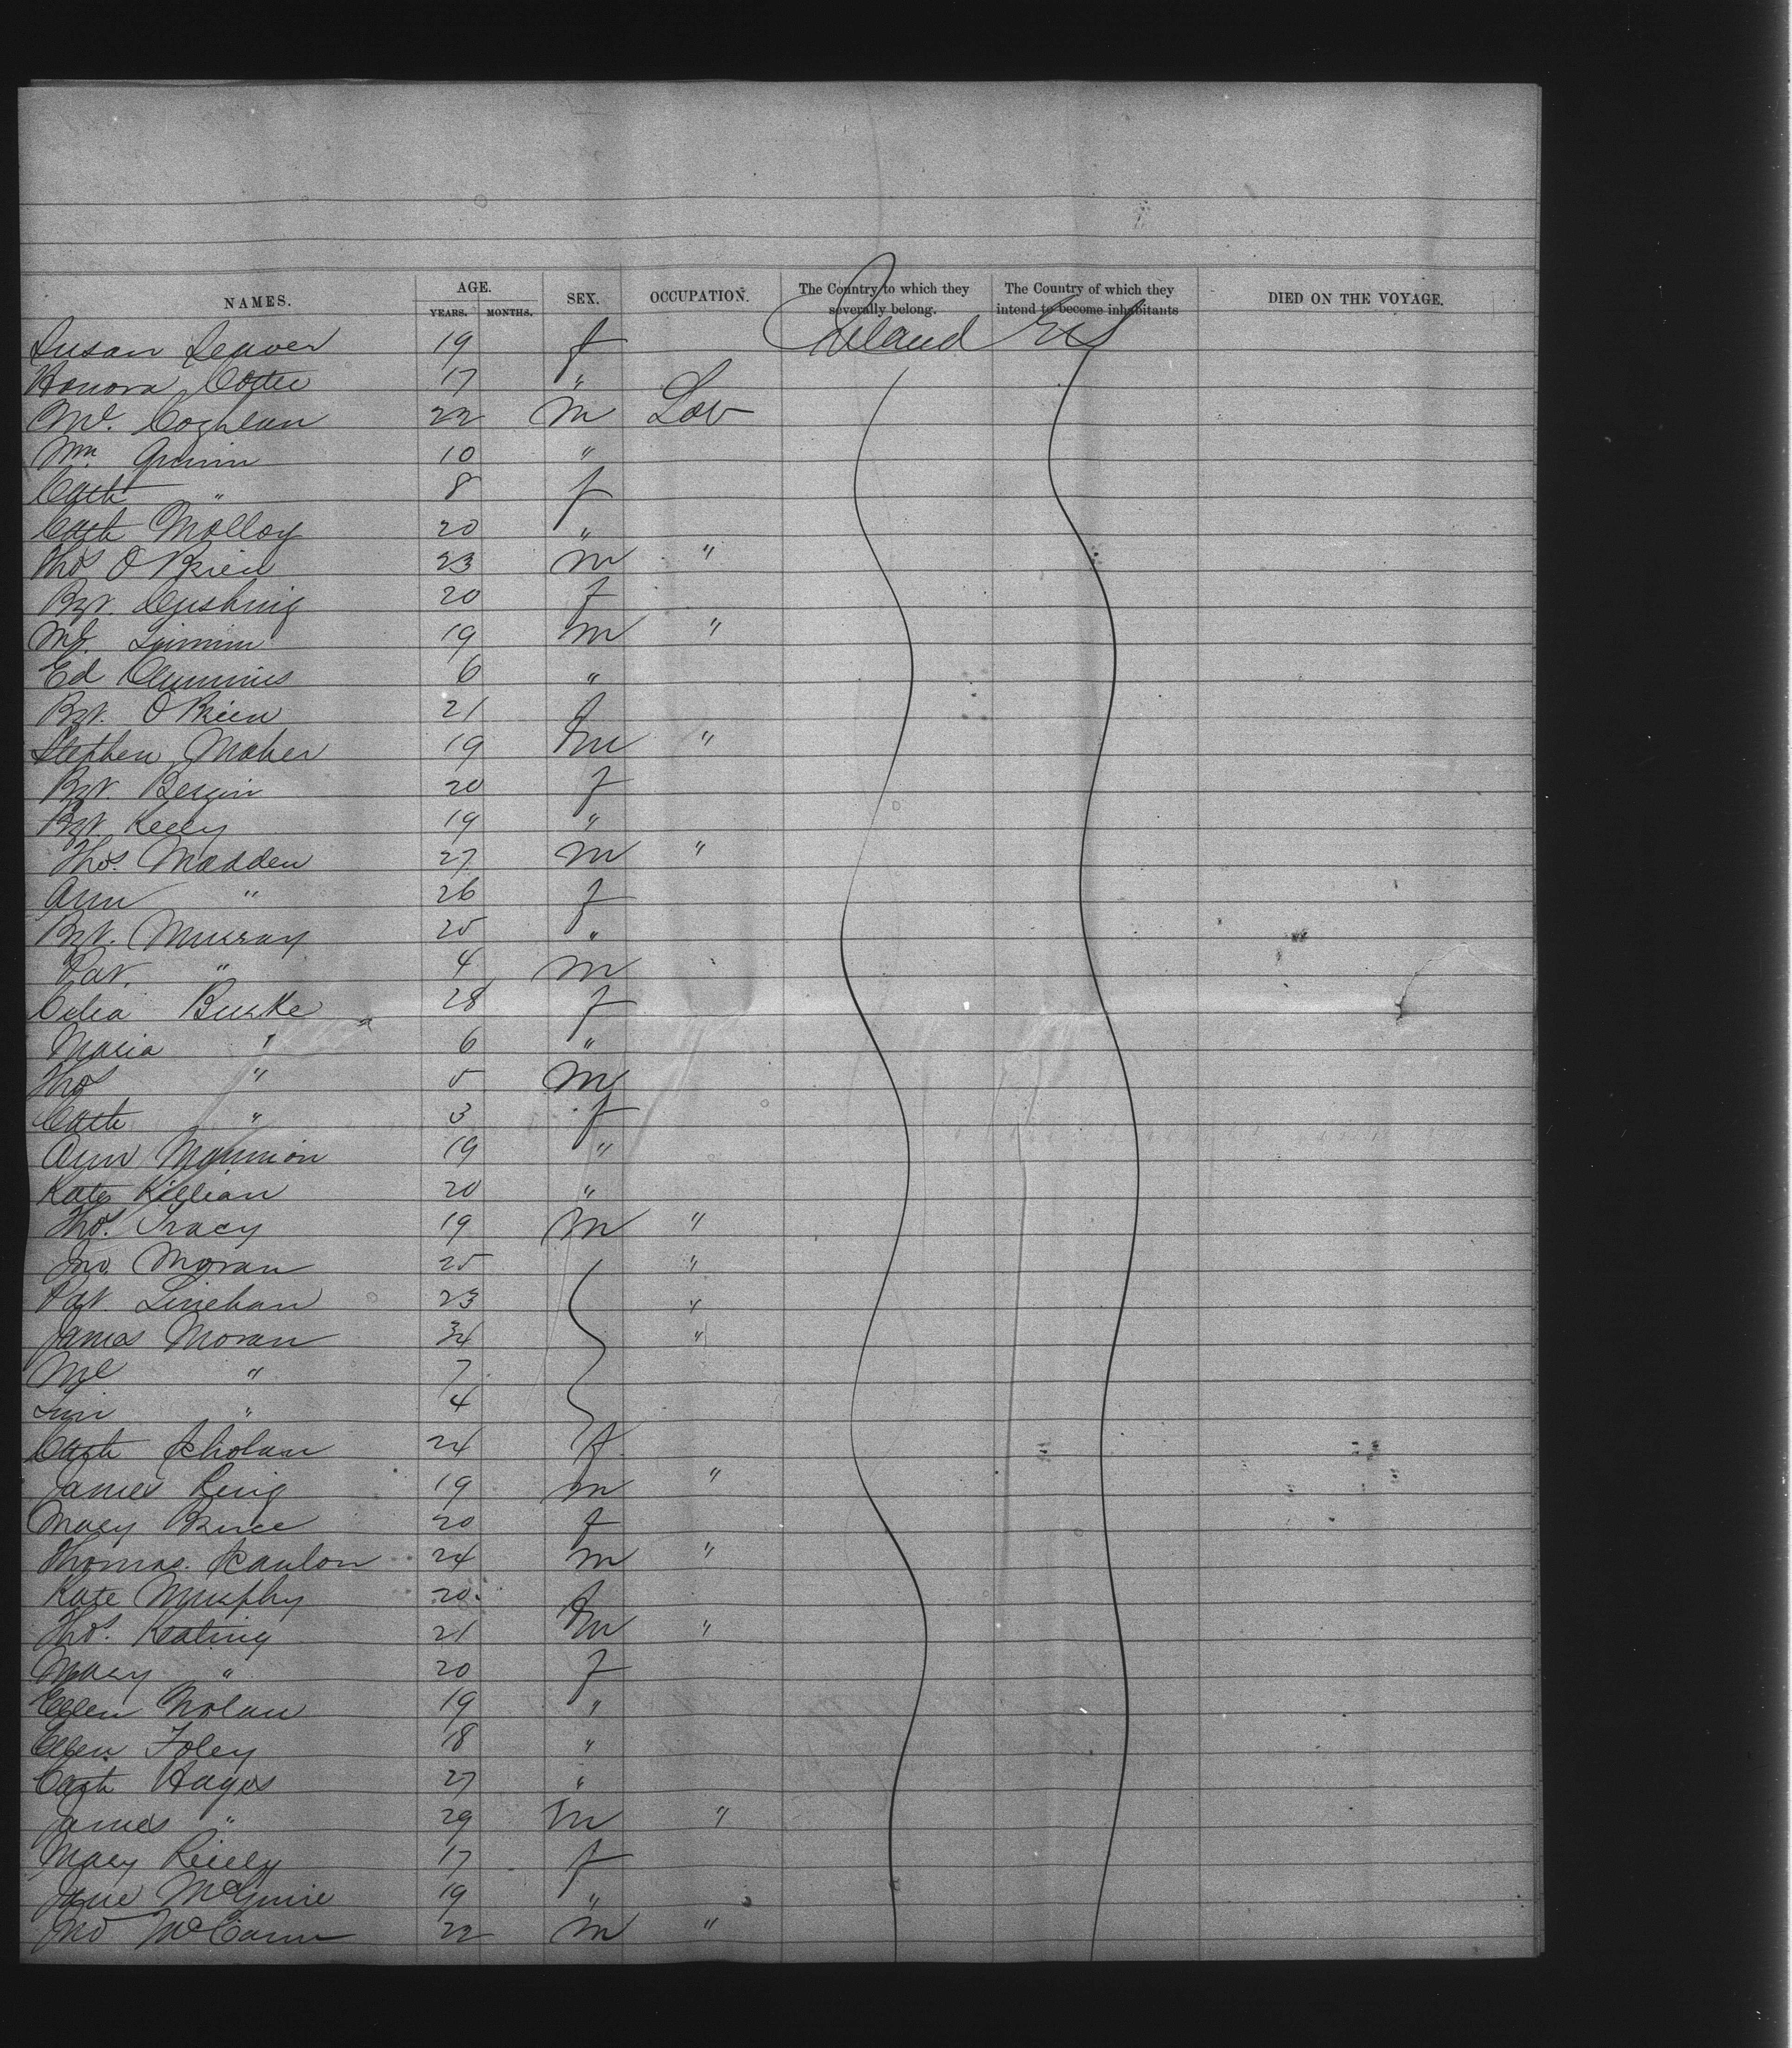 NAMES. AGE. SEX. OCCUPATION. The Country to which they severally belong. The Country of which they intend to become inhabitants DIED ON THE VOYAGE.
YEARS. MONTHS.
Susan Seaver 19 f Ireland U S
Honora Cotter 17 "
Ml. Coghlan 22 m Lab
Wm. Quinn 10 "
Cath " 8 f
Cath Molloy 20 "
Thos O Brien 23 m "
Bgt. Cushing 20 f
Ml. 19 m "
Ed Cummins 6 "
Bgt. O Brien 21 f
Stephen Maher 19 m "
Bgt. Bergin 20 f
Bgt. Kelly 19 "
Thos. Madden 27 m "
Ann " 26 f
Bgt. Murray 25 "
Pat. " 4 m
Celia Burke 28 f
Maria " 6 "
Thos " 5 m
Cath " 3 f
Ann 19 "
Kate Killian 20 "
Thos. Tracy 19 m "
Jno. Moran 25 "
Pat. Linehan 23 "
James Moran 34 "
Ml " 7
" 4
Cath 24 f
James Ring 19 m "
Mary Bruce 20 f
Thomas Scanlon 24 m "
Kate Murphy 20 f
Thos. Keating 21 m "
Mary " 20 f
Ellen Nolan 19 "
Ellen Foley 18 "
Cath Hayes 27 "
James " 29 m "
Mary Reilly 17 f
Jane McGuire 19 "
Jno McCann 22 m "